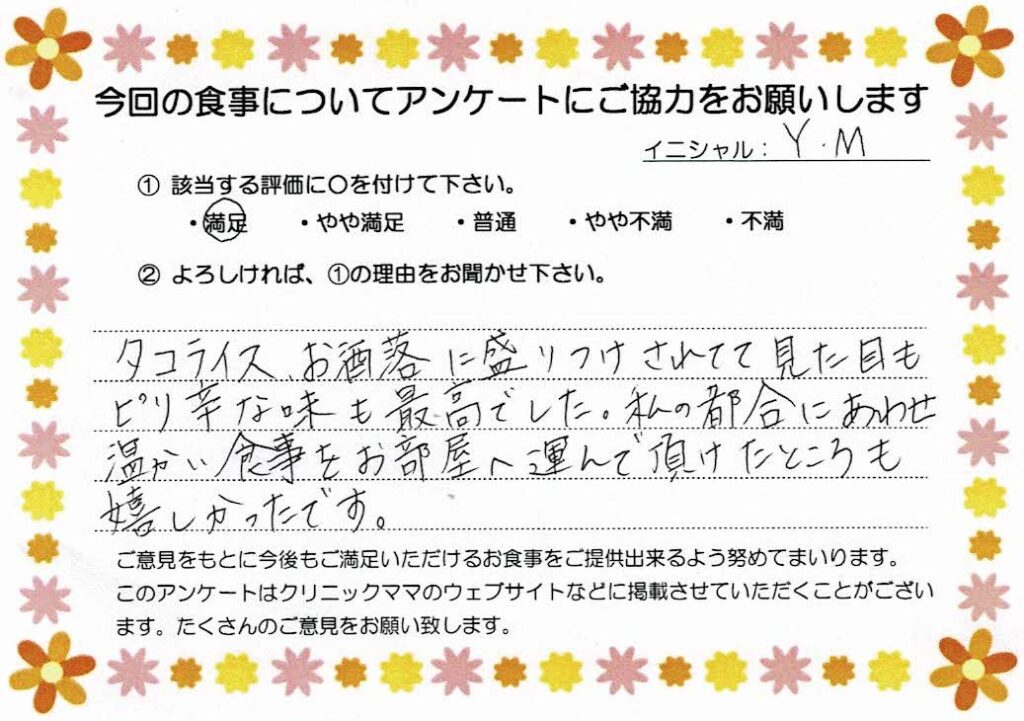 今回の食事についてアンケートにご協力をお願いします
イニシャル： Y.M
① 該当する評価に〇を付けて下さい。
・満足 ・やや満足 ・普通 ・やや不満 ・不満
② よろしければ、①の理由をお聞かせ下さい。
タコライス、お洒落に盛りつけされてて見た目も
ピリ辛な味も最高でした。私の都合にあわせ
温かい食事をお部屋へ運んで頂けたところも
嬉しかったです。
ご意見をもとに今後もご満足いただけるお食事をご提供出来るよう努めてまいります。
このアンケートはクリニックママのウェブサイトなどに掲載させていただくことがござい
ます。たくさんのご意見をお願い致します。